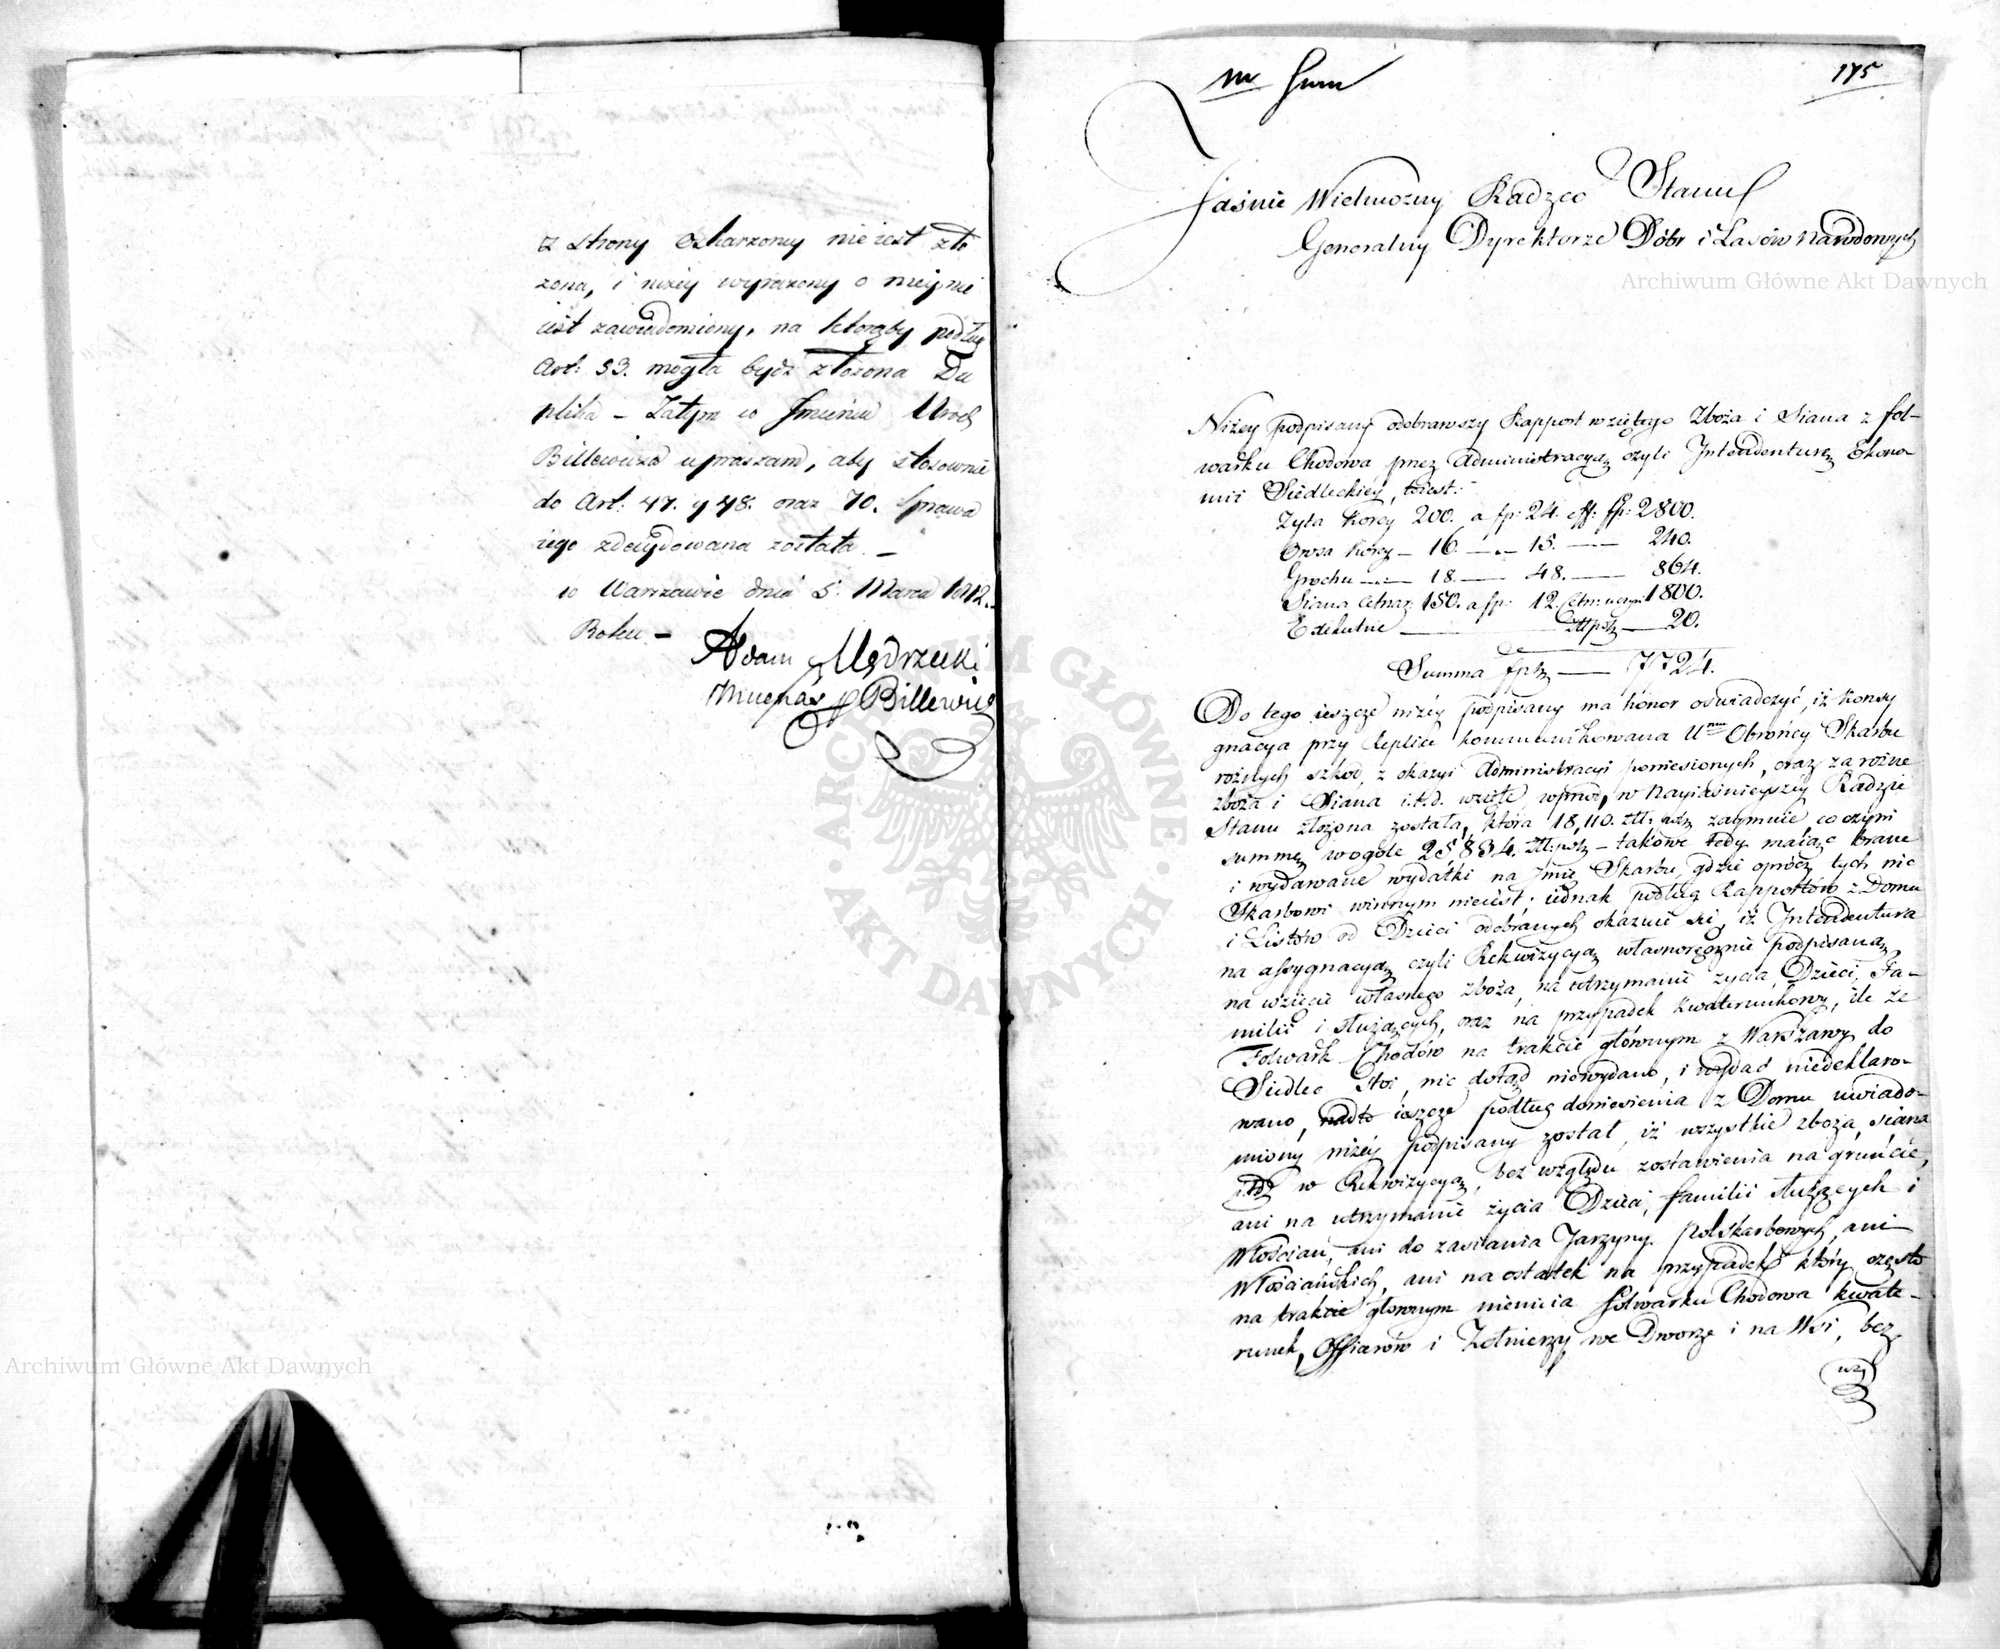 z strony Oskarzoney nie iest zło
zona, i niżey wyrażony o niey nie
iest zawiadomiony, na ktoraby podług
Art: 53. mogła bydź złożona Du
plika – Zatym w Imieniu Urod
Billewicza upraszam, aby stosownie
do Art: 47. y 48. oraz 70. Sprawa
iego zdecydowana została –
w Warszawie dnia 5. Marca 1812.
Roku –
Adam Mędrzecki
Billewicz
175
Jaśnie Wielmożny Radzco Stanu
Generalny Dyrektorze Dóbr i Lasów Narodowych
Niżey podpisany odebrawszy Rapport wziętego Zboża i Siana z fol-
warku Chodowa przez Administracyą czyli Intendenturę Ekono-
mii Siedleckiey, toiest:
Żyta Korcy 200. a fp: 24. eff: fp: 2800.
Korcy – 16. — 15. — 240.
Grochu — 18. — 48. — 864.
Siana Cetnar: 150. a fp: 12. 1800.
— Złłpol — 20.
Summa fpol — 7724.
Do tego ieszcze niżéy podpisany ma honor oświadczyć, iż Konsy
gnacya przy Replice kommunikowana Obrońcy Skarbu
rożnych szkód, z okazyi Administracyi poniesionych, oraz za rożne
zboża i Siana i.t.d. wzięte, w Nayiaśnieyszéy Radzie
Stanu złożona została, która 18,110. Złł: pol: zaymuie co czyni
summę wogóle 25834. Złł:pol – takowe tedy maiąc brane
i wydawane wydatki na imie Skarbu, gdzie oprócz tych nic
Skarbowi winnym nieiest, iednak podług Rapportów z Domu
i Listów od Dzieci odebranych okazuie się, iż Intendentura
na assygnacyą czyli Rekwizycyą własnoręcznie podpisaną
na wzięcie własnego zboża, na utrzymanie życia, Dzieci, Fa-
milii i służących, oraz na przypadek kwaterunkowy, ile że
Folwark Chodów na trakcie głównym z Warszawy do
Siedlec stoi, nic dotąd niewydano, i wydać niedeklaro-
wano, nadto ieszcze podług doniesienia z Domu uwiado-
miony niżéy podpisany został, iż wszystkie zboża, siana
itd w Rekwizycyą, bez względu zostawienia na gruńcie,
ani na utrzymanie życia Dzieci, familii służących i
Włościan, ani do zasiania Jarzyny Pol Skarbowych, ani
Włościańskich, ani na ostatek na przypadek który często
na trakcie głownym niemiia folwarku Chodowa kwate-
runek, Officiarów i Żołnierzy we Dworze i na Wsi, bez
wzg
Archiwum Główne Akt Dawnych
Archiwum Główne Akt Dawnych
ARCHIWUM GŁÓWNE · AKT DAWNYCH ·